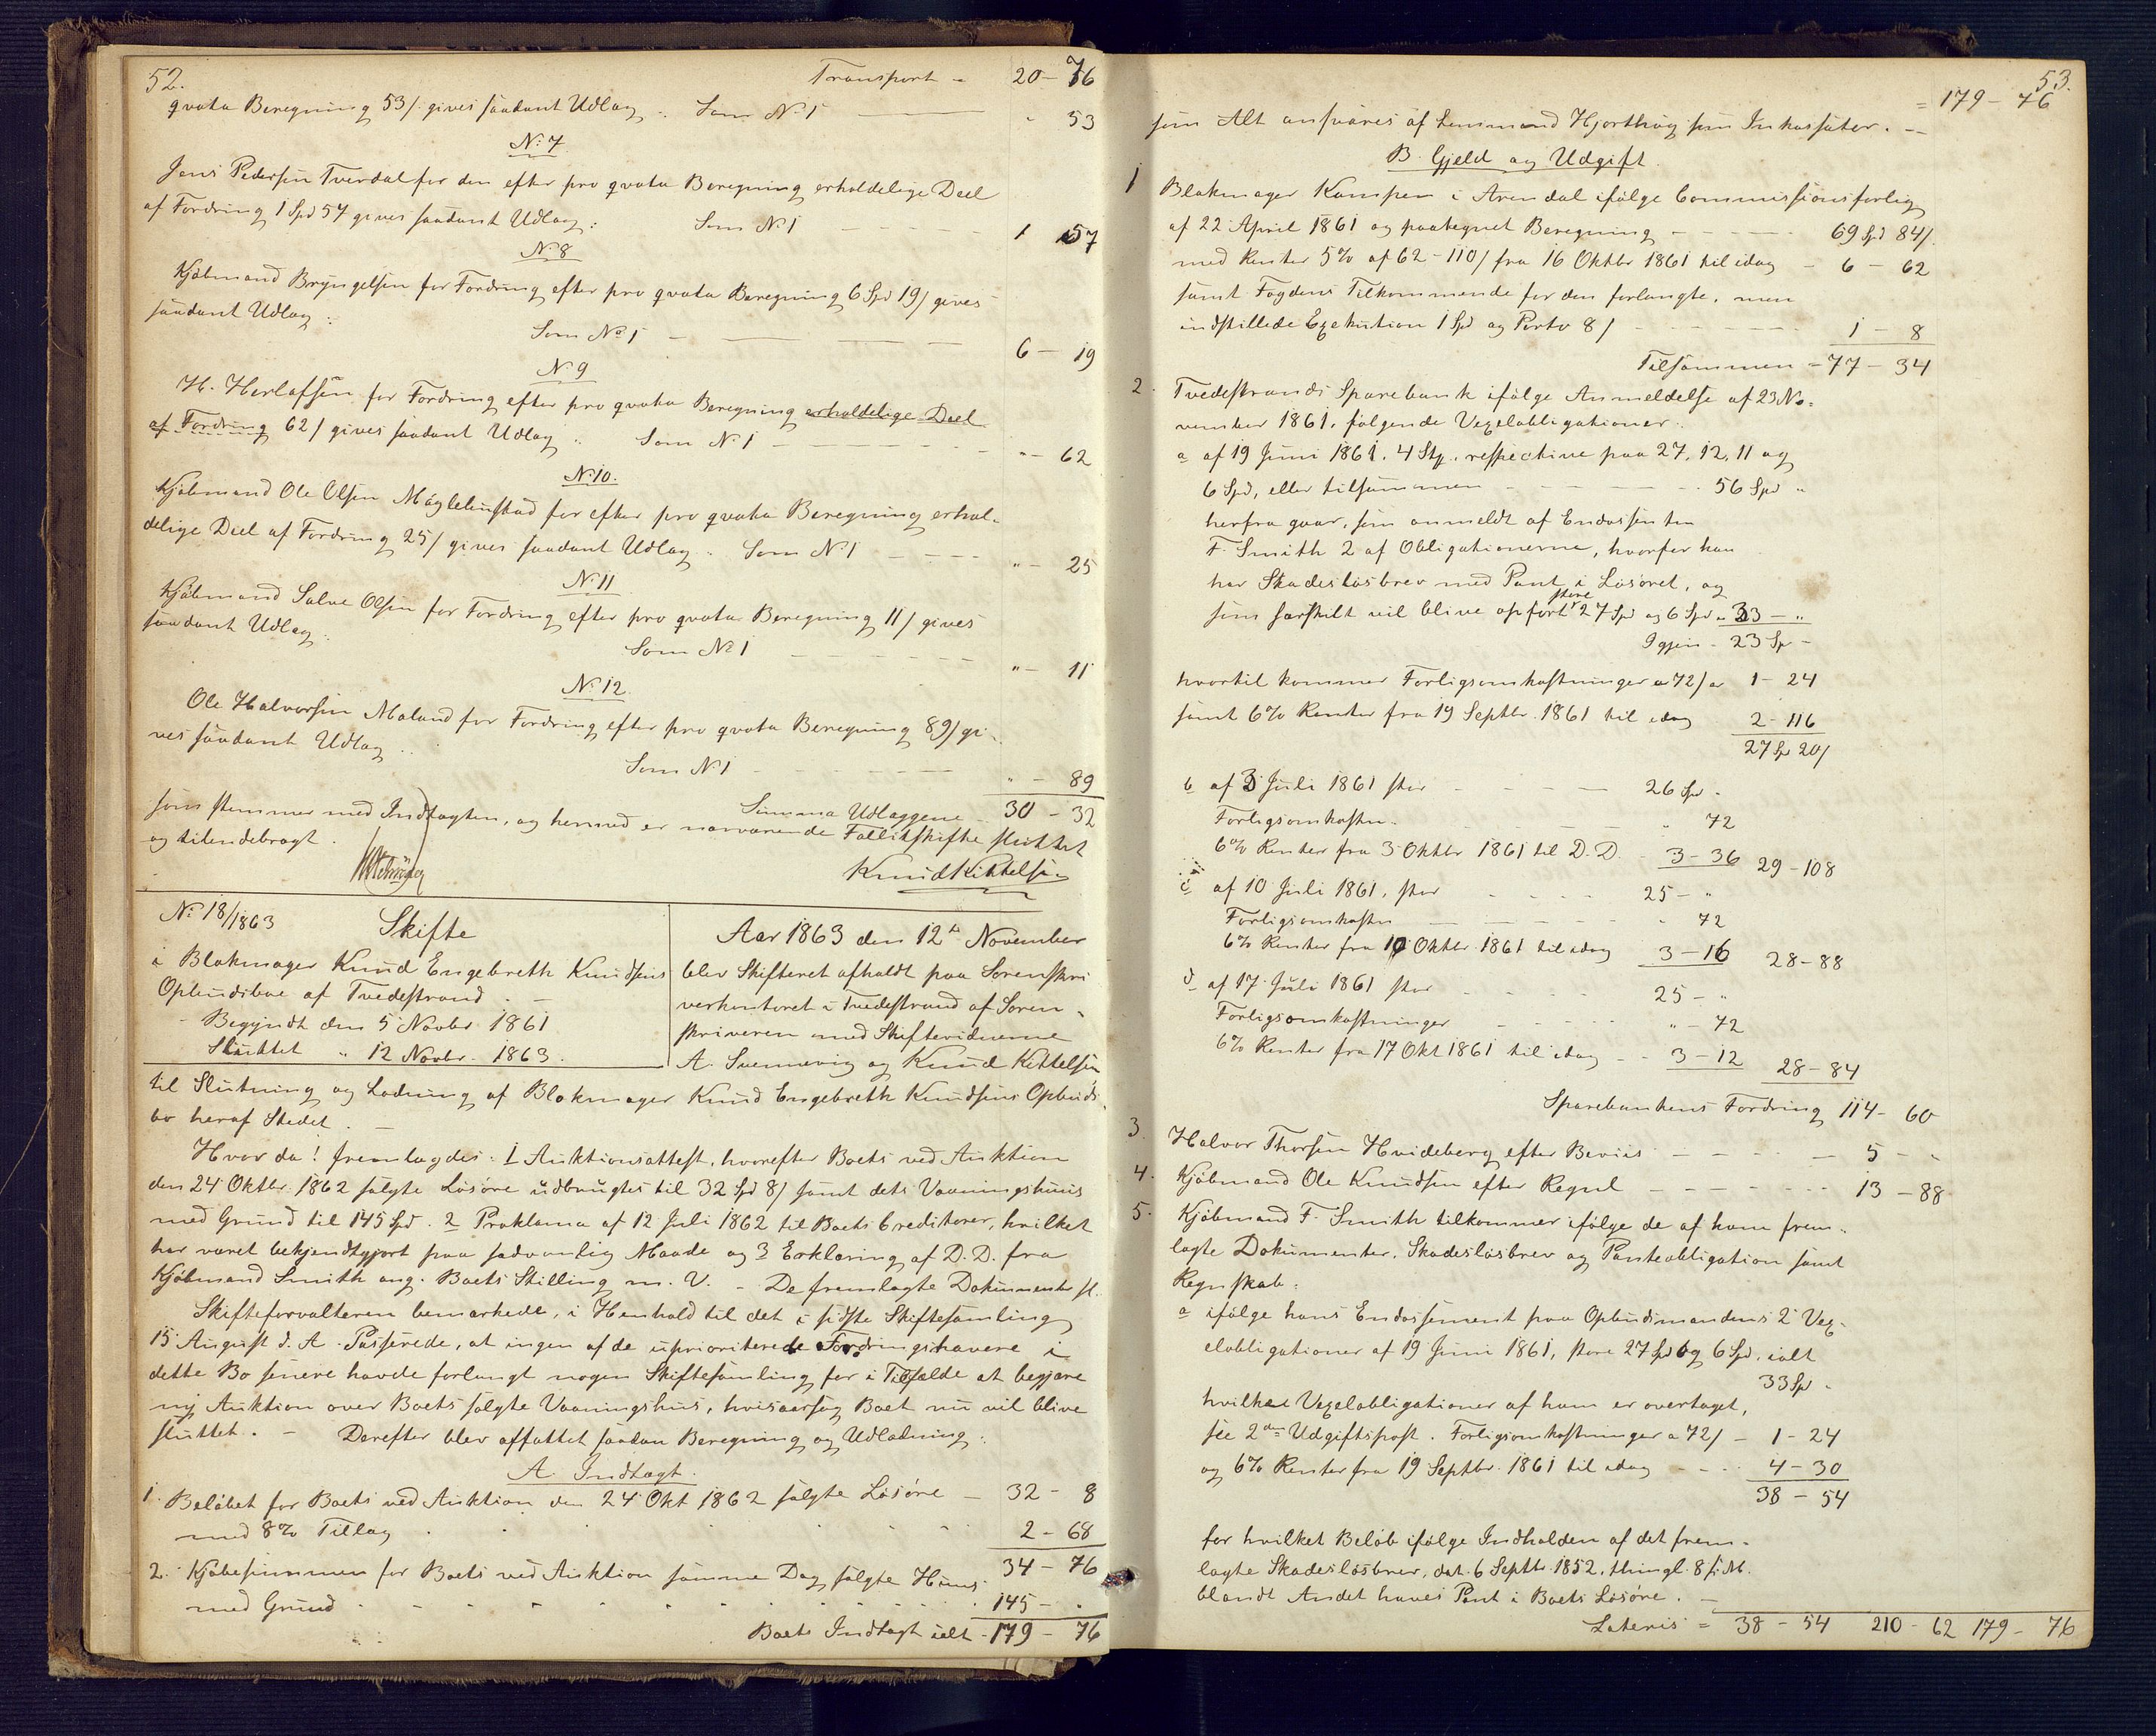 52.
Transport = 20 - 76
qvota Beregning 53/ gives saadant Udlæg: Som No 1 — " 53
No 7
Jens Pedersen Tverdal for den efter pro qvota Beregning erholdelige Deel
af Fordring 1 Spd 57 gives saadant Udlæg: Som No 1 - - - - 1 57
No 8
Kjøbmand Bryngelsen for Fordring efter pro qvota Beregning 6 Spd 19/ gives
saadant Udlæg:
Som No 1 — — — — 6 - 19
No 9
H. Herlofsen for Fordring efter pro qvota Beregning erholdelige Deel
af Fordring 62/ gives saadant Udlæg: Som No 1 — — " - 62
No 10.
Kjøbmand Ole Olsen Møglebustad for efter pro qvota Beregning erhol-
delige Deel af Fordring 25/ gives saadant Udlæg: Som No 1 — — " - 25
No 11
Kjøbmand Salve Olsen for Fordring efter pro qvota Beregning 11/ gives
saadant Udlæg:
Som No 1 - - - - " - 11
No 12
Ole Halvorsen Moland for Fordring efter pro qvota Beregning 89/ gi-
ves saadant Udlæg:
Som No 1 - - - - " - 89
Summa Udlæggene 30 - 32
som stemmer med Indtægten, og hermed er nærværende Fallitskifte sluttet
og tilendebragt.
Knud Kittelsen
No 18/1863
Skifte
i Blokmager Knud Engebreth Knudsens
Opbudsboe af Tvedestrand. —
Begyndt den 5 Novbr 1861
Sluttet " 12 Novbr. 1863.
Aar 1863 den 12te November
blev Skifteret afholdt paa Sorenskri
verkontoret i Tvedestrand af Soren-
skriveren med Skiftevidnerne
A. Svennevig og Knud Kittelsen
til Slutning og Lodning af Blokmager Knud Engebreth Knudsens Opbuds-
bo heraf Stedet. —
Hvor da! fremlagdes: 1 Auktionsattest, hvorefter Boets ved Auktion
den 24 Oktbr 1862 solgte Løsøre udbragtes til 32 Spd 8/ samt dets Vaaningshuus
med Grund til 145 Spd. 2 Proklama af 12 Juli 1862 til Boets Creditorer, hvilket
har været bekjendtgjort paa sædvanlig Maade og 3 Erklæring af D. D. fra
Kjøbmand Smith ang. Boets Stilling m. V. - De fremlagte Dokumenter fl.
Skifteforvalteren bemærkede, i Henhold til det i sidste Skiftesamling
15 August d. A. Passerede, at ingen af de uprioriterede Fordringshavere i
dette Bo senere havde forlangt nogen Skiftesamling for i Tilfælde at begjære
ny Auktion over Boets solgte Vaaningshus, hvisaarsag Boet nu vil blive
sluttet. - Derefter blev affattet saadan Beregning og Udlodning:
A. Indtægt.
1. Beløbet for Boets ved Auktion den 24 Okt 1862 solgte Løsøre — 32 - 8
med 8% Tillæg 2 - 68
34 - 76
2. Kjøbesummen for Boets ved Auktion samme Dag solgte Huus
med Grund - - - - 145 - "
Boets Indtægt ialt - 179 - 76
53.
= 179 - 76
som Alt ansvares af Lensmand Hjorthøg som Inkassator. —
B. Gjeld og Udgift.
1 Blokmager Kampen i Arendal ifølge Commissionsforlig
af 22 April 1861 og paategnet Beregning — — 69 Spd 84/.
med Renter 5% af 62 - 110/ fra 16 Oktbr 1861 til idag - 6 - 62
samt Fogdens Tilkommende for den forlangte, men
indstillede Exekution 1 Spd og Porto 8/ - - - 1 - 8
Tilsammen = 77 - 34
2. Tvedestrands Sparebank ifølge Anmeldelse af 23 No-
vember 1861, følgende Vexelobligationer:
a af 19 Juni 1861. 4 Stk. respective paa 27, 12, 11 og
6 Spd, eller tilsammen — — 56 Spd "
herfra gaar, som anmeldt af Endossenten
F. Smith 2 af Obligationerne, hvorfor han
har Skadesløsbrev med Pant i Løsøret, og
som særskilt vil blive opført store 27 Spd og 6 Spd = 33 - "
Igjen - 23 Sp -
hvortil kommer Forligsomkostninger a 72/ = 1 - 24
samt 6% Renter fra 19 Septbr. 1861 til idag 2 - 116
27 Sp 20/
b af 3 Juli 1861 stor — — 26 Spd -
Forligsomkostn. — " 72
6% Renter fra 3 Oktbr 1861 til D. D. 3 - 36 29 - 108
c af 10 Juli 1861, stor - - - 25 - "
Forligsomkostn - - " 72
6% Renter fra 10 Oktbr 1861 til idag 3 - 16 28 - 88
d af 17 Juli 1861 stor - - - 25 - "
Forligsomkostninger - - - " - 72
6% Renter fra 17 Okt 1861 til idag - - 3 - 12 28 - 84
Sparebankens Fordring 114 - 60
3. Halvor Thorsen Hvideberg efter Beviis — — 5 - "
4. Kjøbmand Ole Knudsen efter Regnl — — 13 - 88
5. Kjøbmand F. Smith tilkommer ifølge de af ham frem-
lagte Dokumenter, Skadesløsbrev og Panteobligation samt
Regnskab:
a ifølge hans Endossement paa Opbudsmandens 2 Vex-
elobligationer af 19 Juni 1861, store 27 Spd og 6 Spd, ialt
33 Spd -
hvilke Vexelobligationer af ham er overtaget,
see 2den Udgiftspost. Forligsomkostninger a 72/ - 1 - 24
og 6% Renter fra 19 Septbr. 1861 til idag - - - 4 - 30
38 - 54
for hvilket Beløb ifølge Indholden af det frem-
lagte Skadesløsbrev, dat. 6 Septbr 1852, thingl. 8 s. M.
blandt Andet haves Pant i Boets Løsøre. —
Lateris = 38 - 54 210 - 62 179 - 76